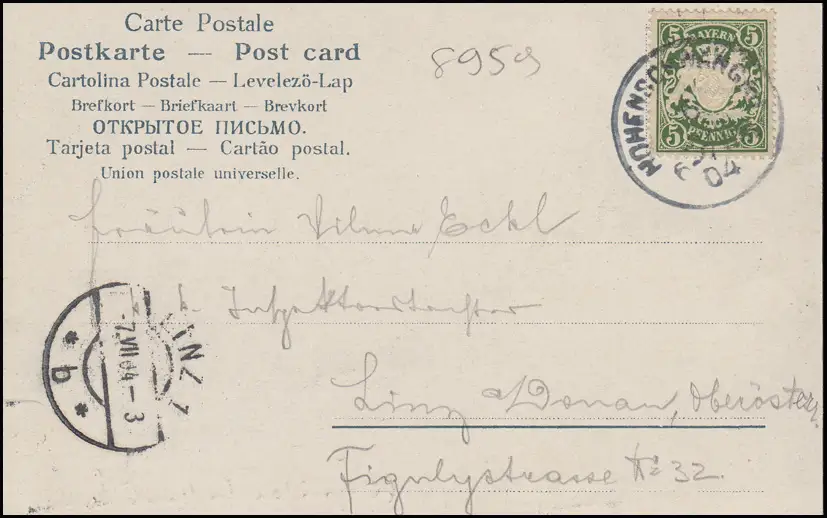 Carte Postale
Postkarte — Post card
Cartolina Postale — Levelezö-Lap
Brefkort — Briefkaart — Brevkort
ОТКРЫТОЕ ПИСЬМО.
Tarjeta postal — Cartão postal.
Union postale universelle.
8959
5 BAYERN 5
5 PFENNIG 5
04
Fräulein Vilma Eckl
k. Inspektorstochter
Linz a/Donau, Oberösterr.
Figulystrasse No 32.
LINZ 1
-7.VII 04-3
* b *